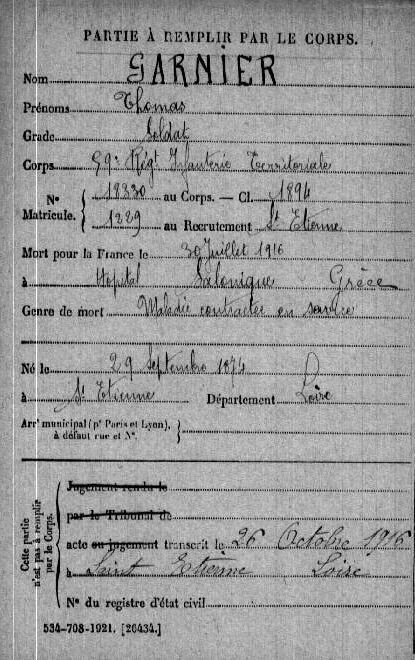 PARTIE À REMPLIR PAR LE CORPS.
Nom GARNIER
Prénoms Thomas
Grade Soldat
Corps 99e Régt Infanterie Territoriale
Nº 18830 au Corps. — Cl. 1894
Matricule. 1229 au Recrutement St Etienne
Mort pour la France le 30 Juillet 1916
à Hopital Salonique Grèce
Genre de mort Maladie contractée en service
Né le 29 Septembre 1874
à St Etienne Département Loire
Arrt municipal (pr Paris et Lyon),
à défaut rue et Nº.
Cette partie
n'est pas à remplir
par le Corps.
Jugement rendu le
par le Tribunal de
acte ou jugement transcrit le 26 Octobre 1916
à Saint Etienne Loire
Nº du registre d'état civil
534-708-1921. [26434.]